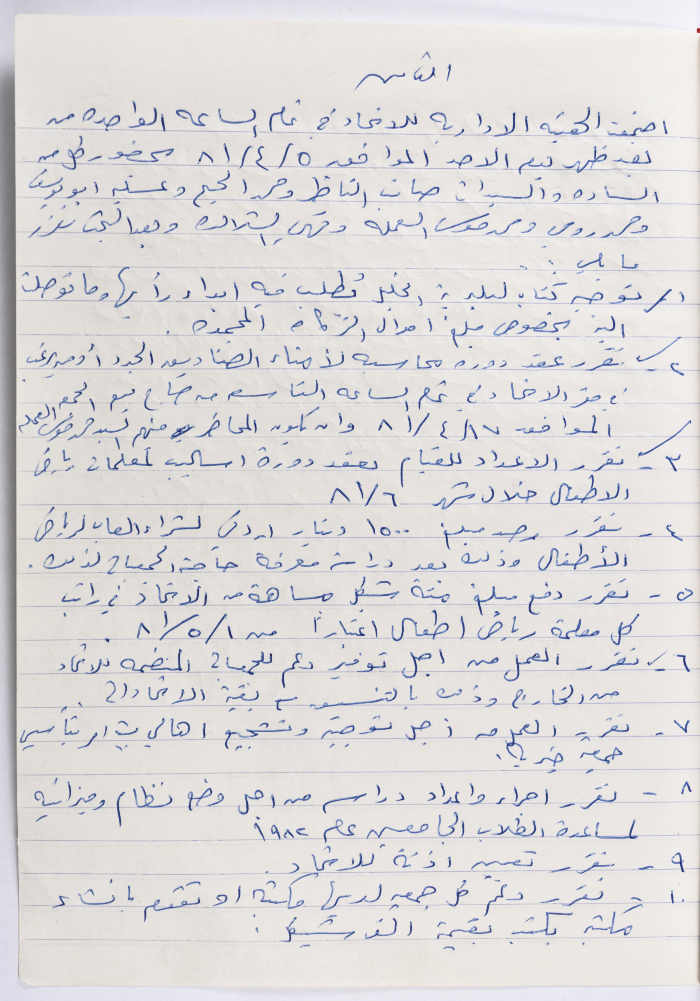 الثامن
اجتمعت الهيئة الادارية للاتحاد في تمام الساعة الواحدة من
بعد ظهر يوم الاحد الموافق ٨١/٤/٥ بحضور كل من
السادة والسيدات صائب الناظر و
و العملة و وبعد البحث تقرر
ما يلي :
١- توجيه كتاب لبلدية الخليل نطلب فيه ابداء رأيها وما توصلت
اليه بخصوص مبلغ اموال الزكاة المجمدة .
٢- تقرر عقد دورة محاسبة لأمناء الصناديق الجدد أو من يرغب
في مقر الاتحاد في تمام الساعة التاسعة من صباح يوم الجمعة
الموافق ٨١/٤/١٧ وان يكون المحاضر منهم السيد العملة
٣- تقرر الاعداد للقيام بعقد دورة اساليب لمعلمات رياض
الاطفال خلال شهر ٨١/٦
٤- تقرر رصد مبلغ ١٥٠٠ دينار اردني لشراء العاب لرياض
الأطفال وذلك بعد دراسة معرفة حاجة الجمعيات لذلك .
٥- تقرر دفع مبلغ مئة شيكل مساهمة من الاتحاد في راتب
كل معلمة رياض اطفال اعتبارا من ٨١/٥/١ .
٦- تقرر العمل من اجل توفير دعم للجمعيات المنضمة للاتحاد
من الخارج وذلك بالتنسيق مع بقية الاتحادات .
٧- تقرر العمل من اجل توجيه وتشجيع اهالي بيت امر بتأسيس
جمعية خيرية .
٨- تقرر اجراء واعداد دراسة من اجل وضع نظام وميزانية
لمساعدة الطلاب الجامعيين عام ١٩٨٢
٩- تقرر تعيين اذنة للاتحاد .
١٠- تقرر دعم كل جمعية لديها مكتبة او تقوم بانشاء
مكتبة بكتب بقيمة الف شيكل .